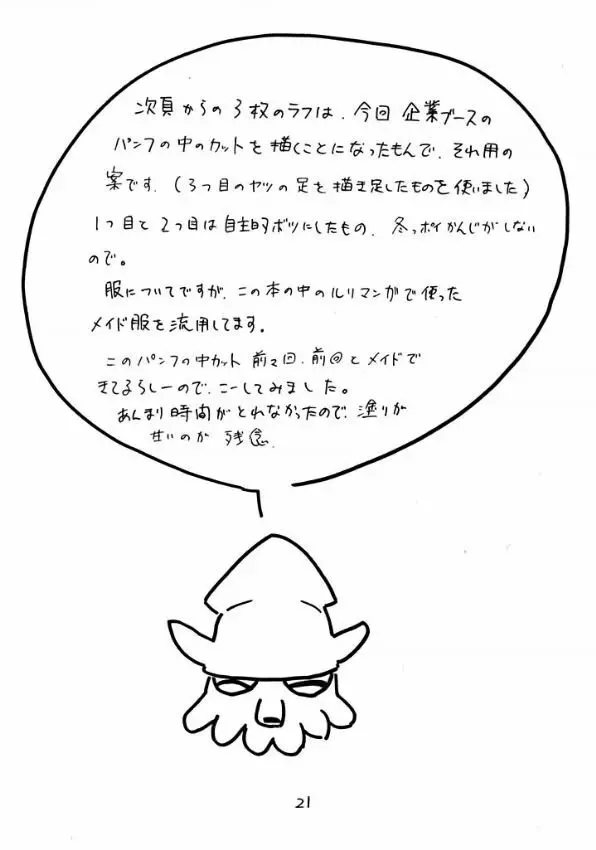 次頁からの3枚のラフは、今回 企業ブースの
パンフの中のカットを描くことになったもんで、それ用の
案です。(3つ目のヤツの足を描き足したものを使いました)
1つ目と2つ目は自主的ボツにしたもの、冬っポイかんじがしない
ので。
服についてですが、この本の中のルリマンガで使った
メイド服を流用してます。
このパンフの中カット 前々回、前回とメイドで
きてるらしーので、こーしてみました。
あんまり時間がとれなかったので、塗りが
甘いのが 残念.
21